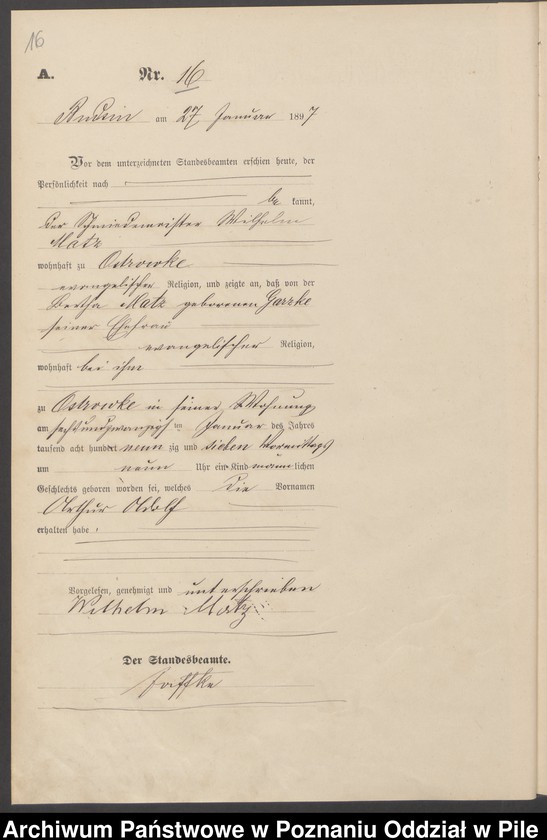 16
A. Nr. 16
am 27 Januar 1897
Vor dem unterzeichneten Standesbeamten erschien heute, der
Persönlichkeit nach
be kannt,
der Schmiedemeister Wilhelm
Matz
wohnhaft zu Ostrowke
evangelischer Religion, und zeigte an, daß von der
Bertha Matz geborenen Garzke
seiner Ehefrau
evangelischer Religion,
wohnhaft bei ihm
zu Ostrowke in seiner Wohnung
am sechsundzwanzigsten Januar des Jahres
tausend acht hundert neun zig und sieben Vormittags
um neun Uhr ein Kind männlichen
Geschlechts geboren worden sei, welches die Vornamen
Arthur Adolf
erhalten habe.
Vorgelesen, genehmigt und unterschrieben
Wilhelm Matz
Der Standesbeamte.
Archiwum Państwowe w Poznaniu Oddział w Pile